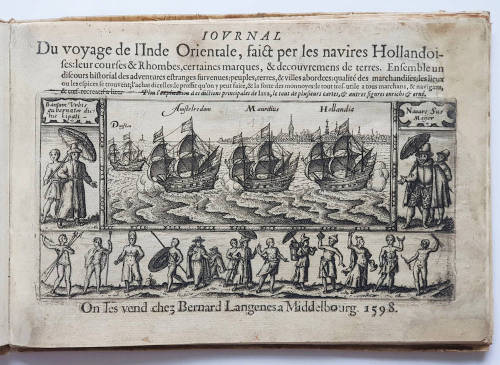 IOVRNAL
Du voyage de l'Inde Orientale, faict per les navires Hollandoi-
ses: leur courses & Rhombes, certaines marques, & decouvremens de terres. Ensemble un
discours historial des adventures estranges survenues: peuples, terres, & villes abordées: qualité des marchandises, les lieux
ou les espices se trouvent, l'achat d'icelles: le profit qu'on y peut faire, & la sorte des monnoyes: le tout tres-utile a tous marchans, & navigans,
& tres-recreatif a lire.
principales de Iava, le tout de plusieurs cartes, & autres figures enrichi & orné.
Bantam Urbis
gubernator
Amstelredam Mauritius Hollandia
Navare Sus
Minor
On Les vend chez Bernard Langenes a Middelbourg. 1598.